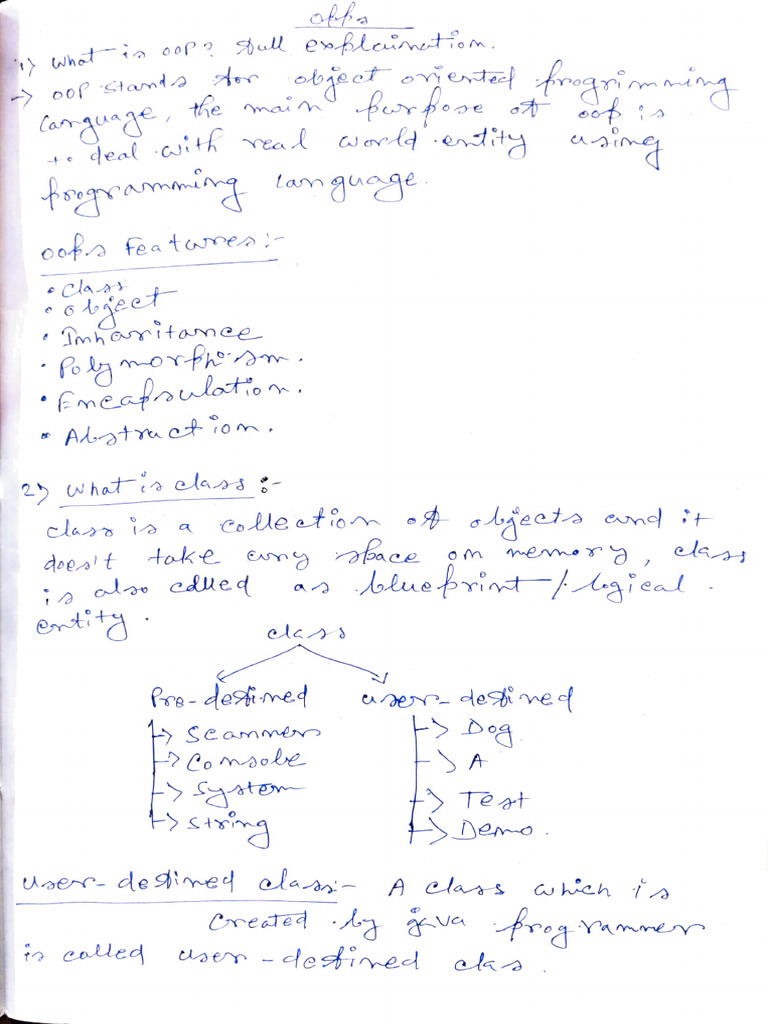 opps
1) What is oop? full explaination.
-> oop stands for object oriented progrimming
language, the main purpose of oop is
to deal with real world entity using
programming language.
oops Features:-
• Class
• object
• Inharitance
• Polymorphism.
• Encapsulation.
• Abstruction.
2) What is class :-
class is a collection of objects and it
does't take any space on memory, class
is also called as blueprint / logical
entity.
class
Pre-defined user-defined
-> Scanner -> Dog
-> Console -> A
-> System -> Test
-> String -> Demo.
user-defined class:- A class which is
created by java programmer
is called user-defined clas.